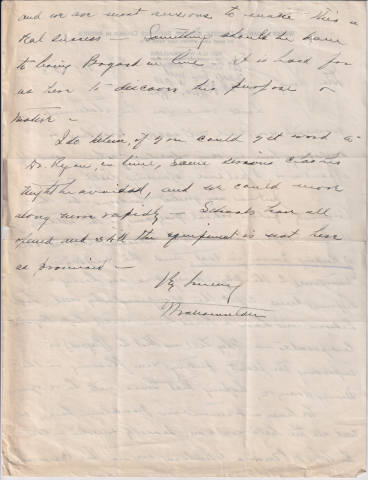 and we are most anxious to make this a
real success – Something should be done
to bring Bogard in line. It is hard for
us here to discover his purpose or
motive –
I do believe, if you could get word to
Dr. Ryan, in time, some serious clashes
might be avoided, and we could move
along more rapidly – Schools have all
opened and still the equipment is not here
as promised –
Very sincerely